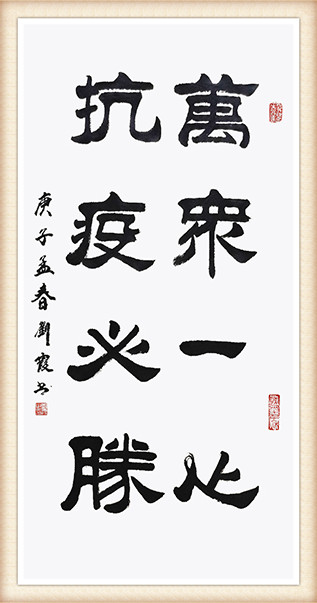 萬眾一心
抗疫必勝
庚子孟春劉霞书